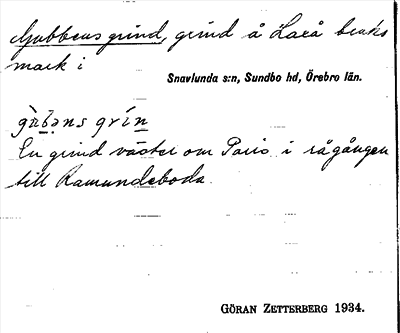 Gubbensgrind, grind å Laxå bruks
mark i
Snavlunda s:n, Sundbo hd, Örebro län.
gùbəns grín
En grind väster om Paris i rågången
till Ramundeboda.
GÖRAN ZETTERBERG 1934.